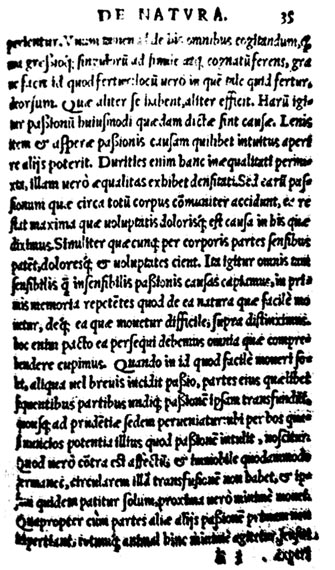 DE NATVRA. 35
de his omnibus cogitandum, q̃
ue facit id quod fertur: locũ uero in quẽ tale quid fertur,
deorsum. Quæ aliter se habent, aliter efficit. Harũ igi
tur passionũ huiusmodi quædam dictæ sint causæ. Lenis
item & asperæ passionis causam quilibet intuitus aperi
re alijs poterit. Durities enim hanc inæqualitati permi
xta, illam uerò æqualitas exhibet densitati. Sed earũ pas
sionum quæ circa totũ corpus cõmuniter accidunt, ea re
stat maxima quæ uoluptatis dolorisq; est causa in his quæ
diximus. Similiter quæcunq; per corporis partes sensibus
patẽt, doloresq; & uoluptates cient. Ita igitur omnis tam
sensibilis q̃ insensibilis passionis causas capiamus, in pri
mis memoria repetẽtes quod de ea natura quæ facilè mo
uetur, deq; ea quæ mouetur difficile, supra distinximus.
hoc enim pacto ea persequi debemus omnia quæ compre
hendere cupimus. Quando in id quod facilè moueri so
let, aliqua uel breuis incidit passio, partes eius quælibet
sequentibus partibus undiq; passionẽ ipsam transfundũt,
quousq; ad prudẽtiæ sedem perueniatur: ubi per hos quasi
nuncios potentia illius quod passionẽ intulit, noscitur.
Quod uerò cõtra est affectũ, & immobile quodammodo
permanet, circularem illã transfusionẽ non habet, &
quidem patitur solum, proxima uerò minimè mouet.
Quapropter cùm partes aliæ alijs passionẽ primam non
impertiant, totumq; animal hinc minimè agitetur,
E 3